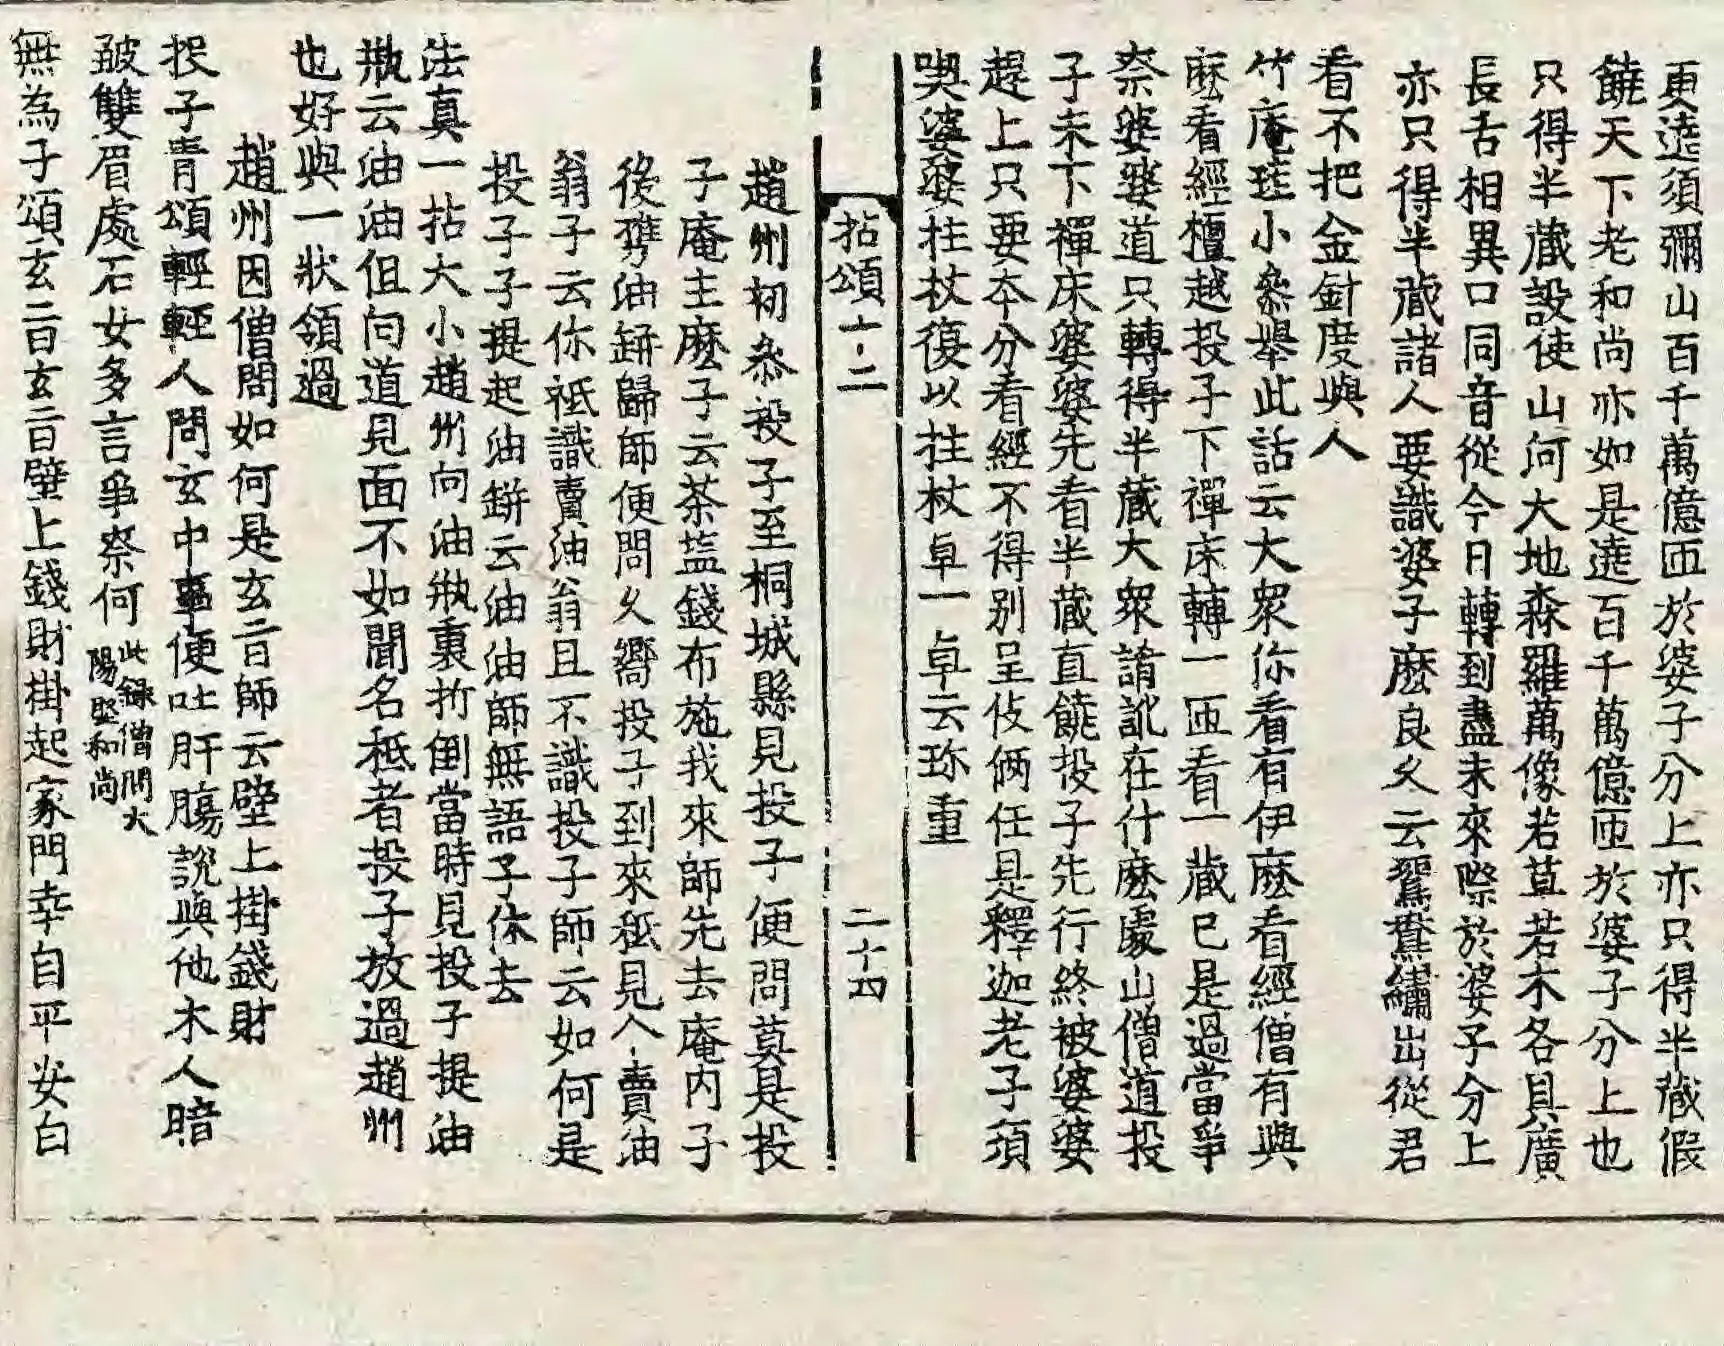 更遶須彌山百千萬億匝於婆子分上亦只得半藏假
饒天下老和尚亦如是遶百千萬億匝於婆子分上也
只得半藏設使山河大地森羅萬像若草若木各具廣
長舌相異口同音從今日轉到盡未來際於婆子分上
亦只得半藏諸人要識婆子麽良久云鴛鴦繡出從君
看不把金針度與人
竹庵珪小叅舉此話云大衆你看有伊麽看經僧有與
麽看經檀越投子下禪床轉一匝看一藏已是過當爭
柰婆婆道只轉得半藏大衆誵訛在什麽處山僧道投
子未下禪床婆婆先看半藏直饒投子先行終被婆婆
趕上只要本分看經不得别呈伎倆任是釋迦老子須
喫婆婆拄杖復以拄杖卓一卓云珎重
拈頌十二 二十四
趙州初叅投子至桐城縣見投子便問莫是投
子庵主麽子云茶塩錢布施我來師先去庵内子
後㩗油缾歸師便問久嚮投子到來秪見人賣油
翁子云你秪識賣油翁且不識投子師云如何是
投子子提起油缾云油油師無語子休去
法真一拈大小趙州向油瓶裏折倒當時見投子提油
瓶云油油但向道見面不如聞名秪者投子放過趙州
也好與一狀領過
趙州因僧問如何是玄旨師云壁上掛錢財
投子青頌輕輕人問玄中事便吐肝膓說與他木人暗
皺雙眉處石女多言爭柰何 此錄僧問大陽堅和尚
無為子頌玄旨玄旨壁上錢財掛起家門幸自平安白